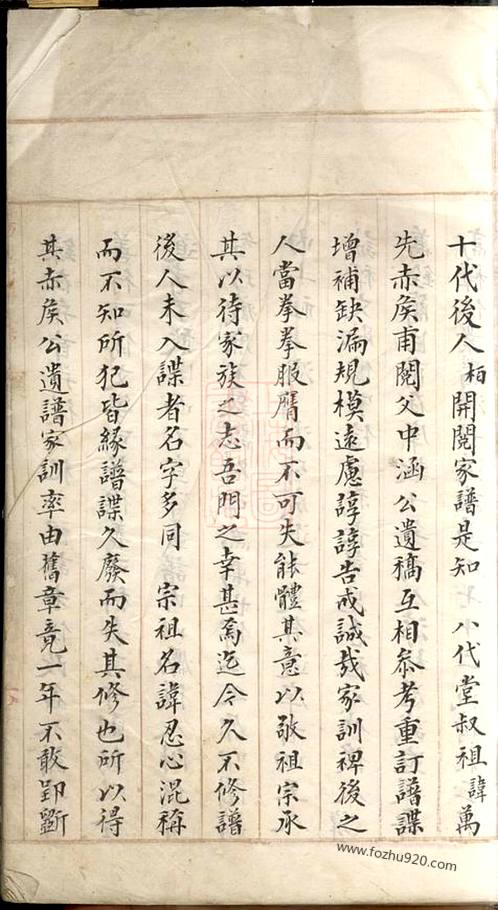 十代後人栢開閱家譜是知　八代堂叔祖諱萬
先赤矦甫閱父中涵公遺稿互相叅考重訂譜諜
增補缺漏規模遠慮諄諄告戒誠哉家訓裨後之
人當拳拳服膺而不可失能體其意以敬祖宗承
其以待家族之志吾門之幸甚焉迄今久不修譜
後人未入諜者名字多同　宗祖名諱忍心混稱
而不知所犯皆緣譜諜久廢而失其修也所以得
其赤矦公遺譜家訓率由舊章竟一年不敢郢斵
www.fozhu920.com